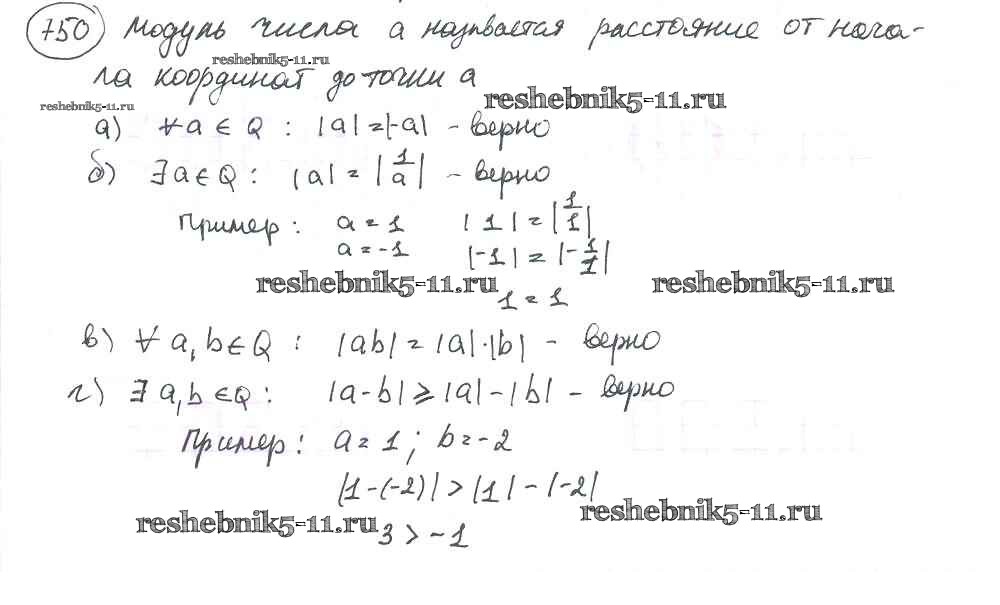 750 Модуль числа а называется расстояние от нача-
reshebnik5-11.ru
ла координат до точки а
reshebnik5-11.ru
reshebnik5-11.ru
а) ∀a ∈ Q : |a| = |-a| - верно
б) ∃a ∈ Q : |a| = |1/a| - верно
Пример: a = 1 |1| = |1/1|
a = -1 |-1| = |-1/1|
reshebnik5-11.ru reshebnik5-11.ru
1 = 1
в) ∀ a, b ∈ Q : |ab| = |a|·|b| - верно
г) ∃ a, b ∈ Q : |a-b| ⩾ |a| - |b| - верно
Пример: a = 1 ; b = -2
|1-(-2)| > |1| - |-2|
reshebnik5-11.ru reshebnik5-11.ru
3 > -1